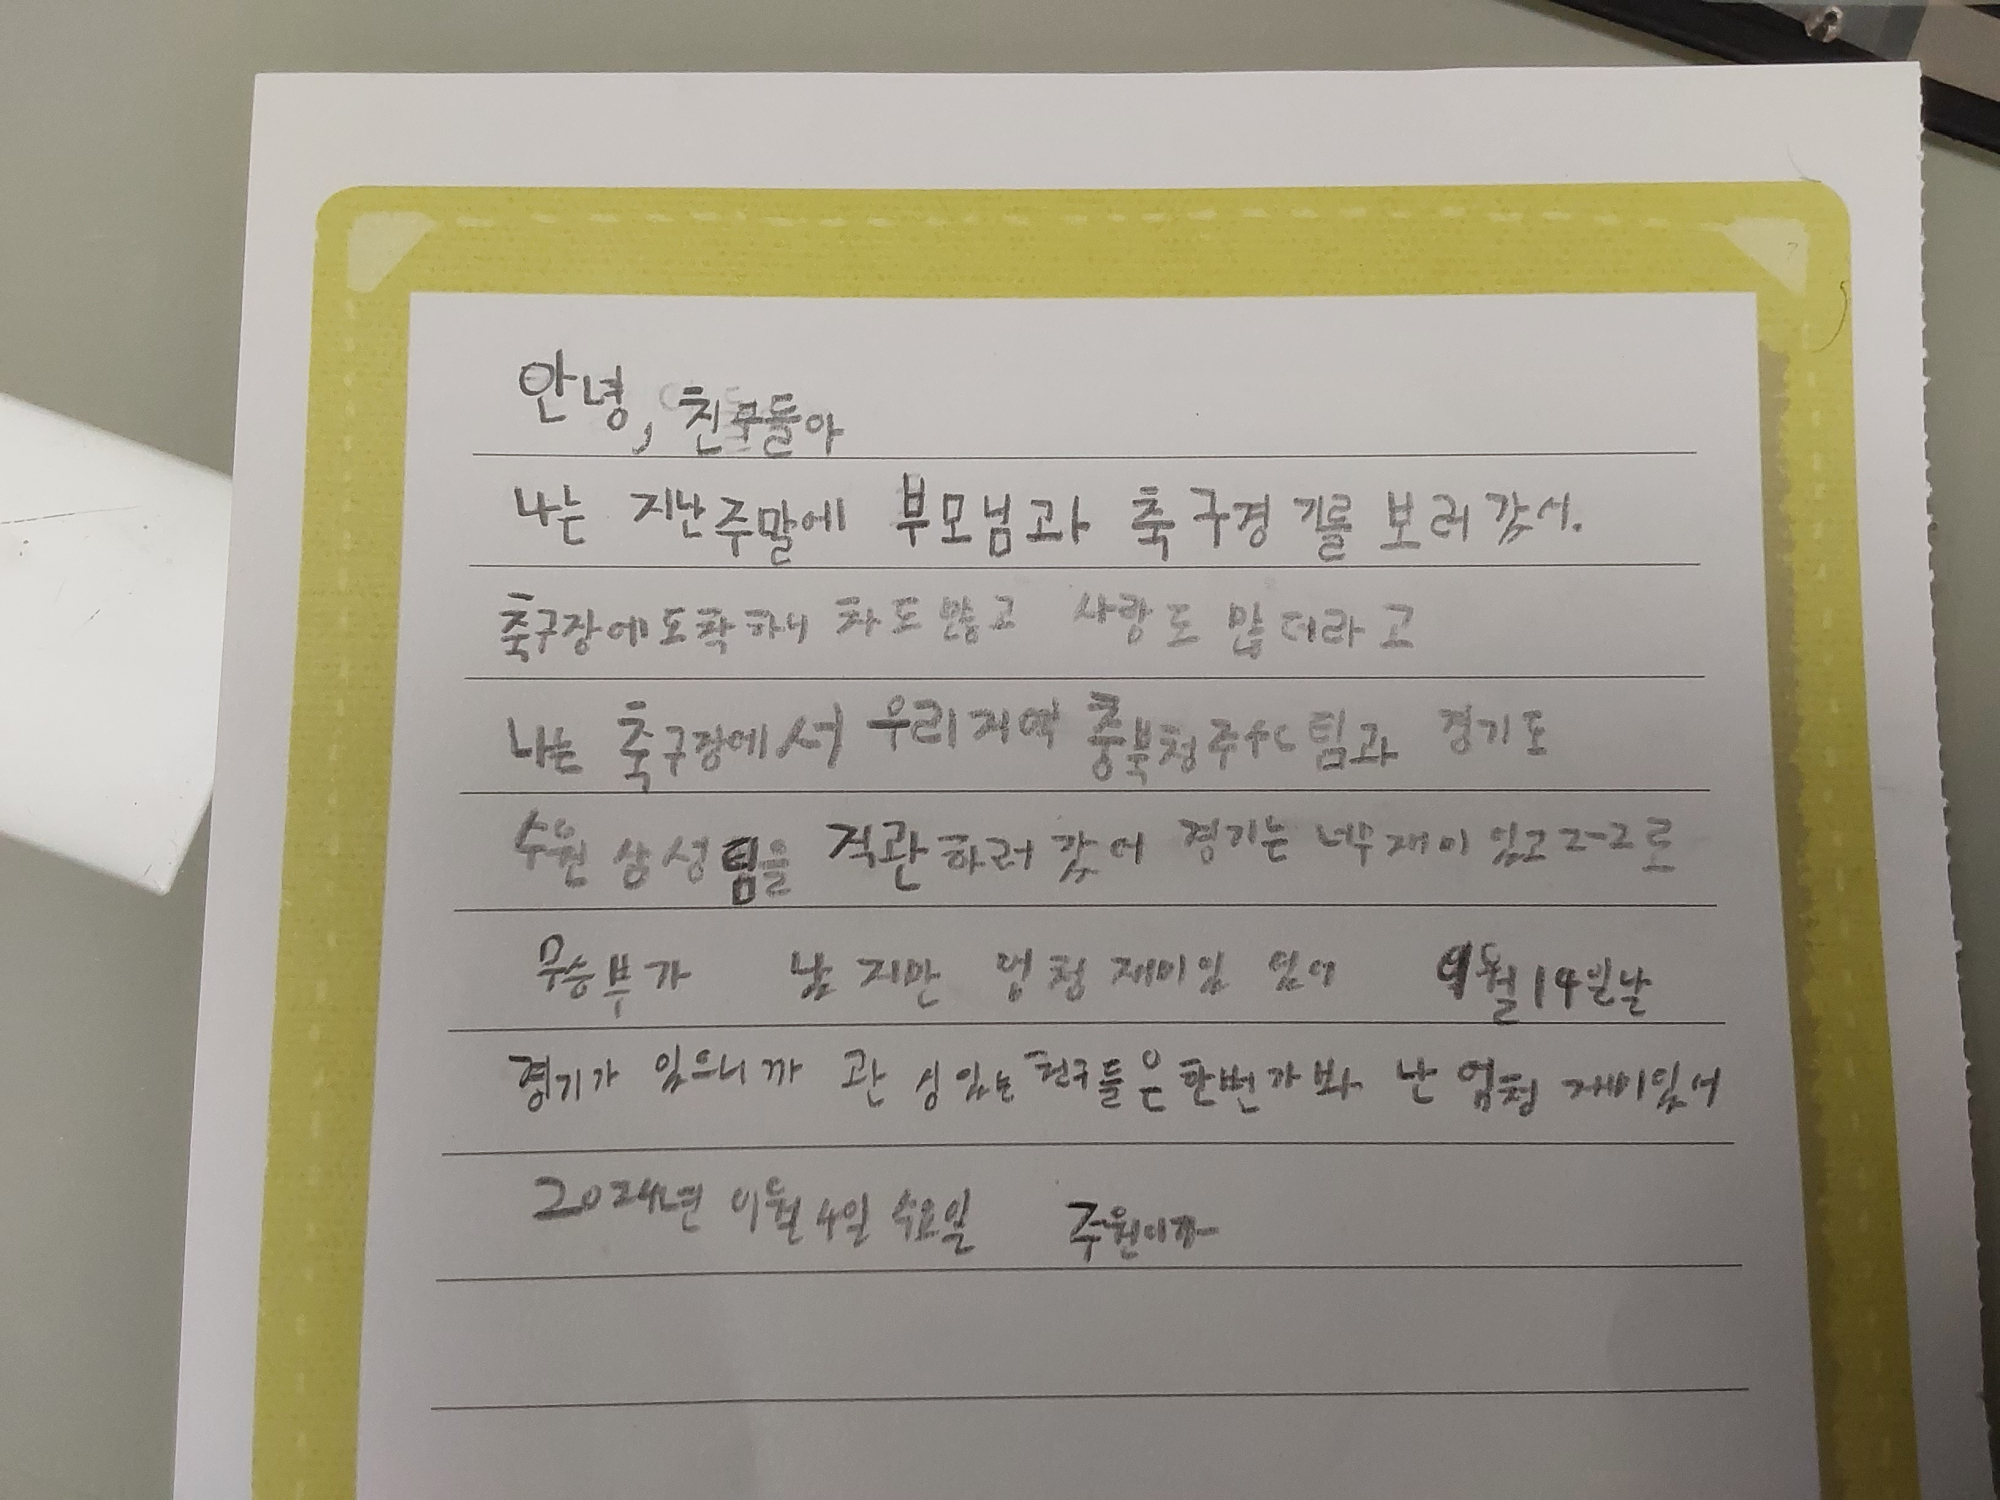 안녕, 친구들아
나는 지난주말에 부모님과 축구경기를 보러갔서.
축구장에도착하니 차도많고 사람도 많더라고
나는 축구장에서 우리지역 충북청주fc팀과 경기도
수원삼성팀을 직관하러갔어 경기는 너무재미있고 2-2로
무승부가 났지만 엄청재미있 었어 9월14일날
경기가 있으니까 관심있는친구들은한번가봐 난 엄청 재미있서
2024년 9월4일수요일 주원이가